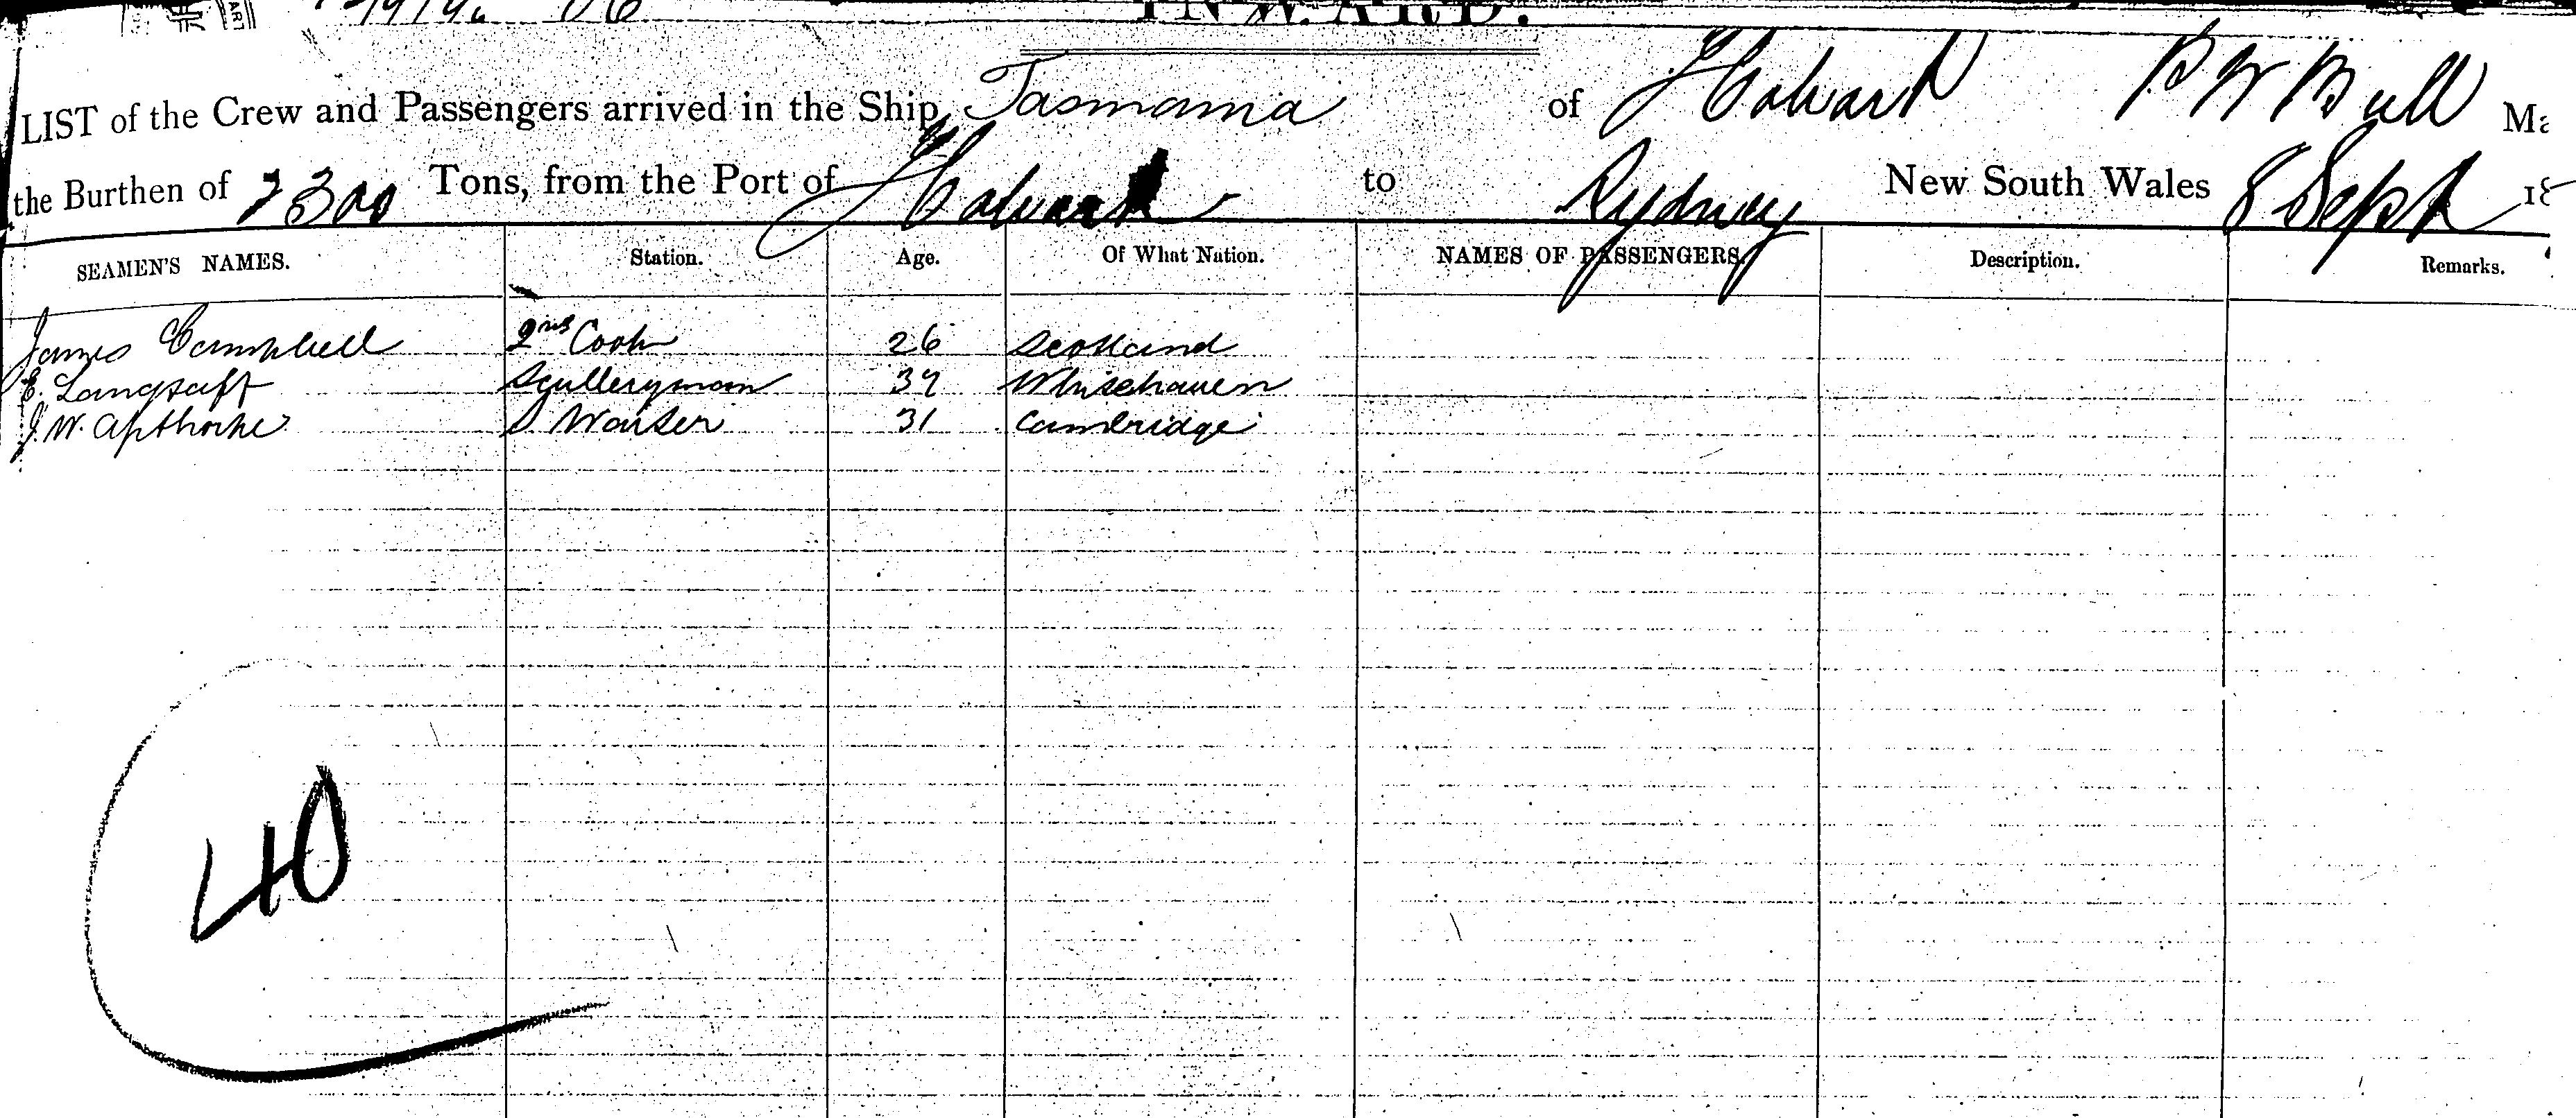 INWARD.
LIST of the Crew and Passengers arrived in the Ship Tasmania of Hobart B W Bull Ma
the Burthen of 2300 Tons, from the Port of Hobart to Sydney New South Wales 8 Sept 18
SEAMEN'S NAMES. Station. Age. Of What Nation. NAMES OF PASSENGERS. Description. Remarks.
James Campbell 2nd Cook 26 Scotland
E. Langtaft Sculleryman 37 Whitehaven
J. W. Apthorpe S. Waiter 31 Cambridge
40